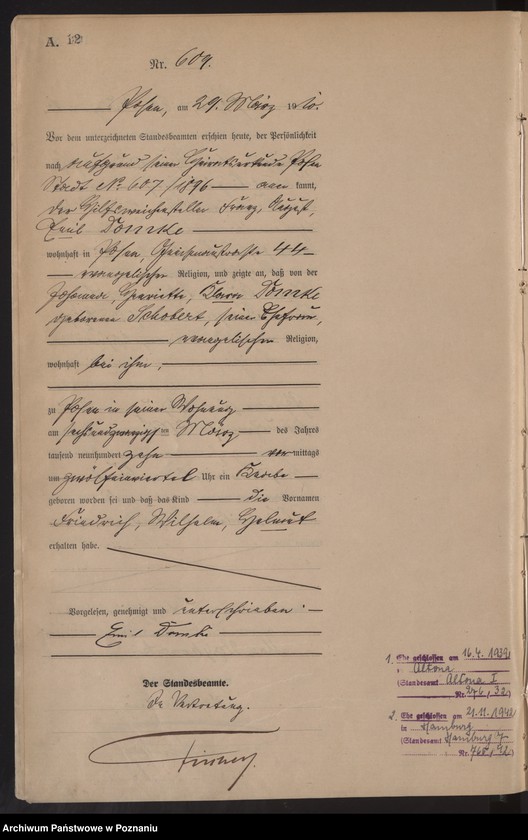 A. 12
Nr. 609.
Posen, am 29. März 1910.
Vor dem unterzeichneten Standesbeamten erschien heute, der Persönlichkeit
nach auf Grund seiner Heiratsurkunde Posen
Stadt No 607/1896 anerkannt,
der Hilfsweichensteller Franz, August,
Emil Domke
wohnhaft in Posen, 44
evangelischer Religion, und zeigte an, daß von der
Johanna Henriette, Klara Domke
geborenen Schobert, seiner Ehefrau,
evangelischer Religion,
wohnhaft bei ihm,
zu Posen in seiner Wohnung
am sechsundzwanzigsten März des Jahres
tausend neunhundert zehn vormittags
um Uhr ein Knabe
geboren worden sei und daß das Kind die Vornamen
Friedrich, Wilhelm, Helmut
erhalten habe.
Vorgelesen, genehmigt und unterschrieben
Emil Domke
Der Standesbeamte.
In Vertretung.
1. Ehe geschlossen am 16.4.1932
in Altona
(Standesamt Altona I
Nr. 246/32)
2. Ehe geschlossen am 21.11.1942
in Hamburg
(Standesamt Hamburg
Nr. 765/42)
Archiwum Państwowe w Poznaniu